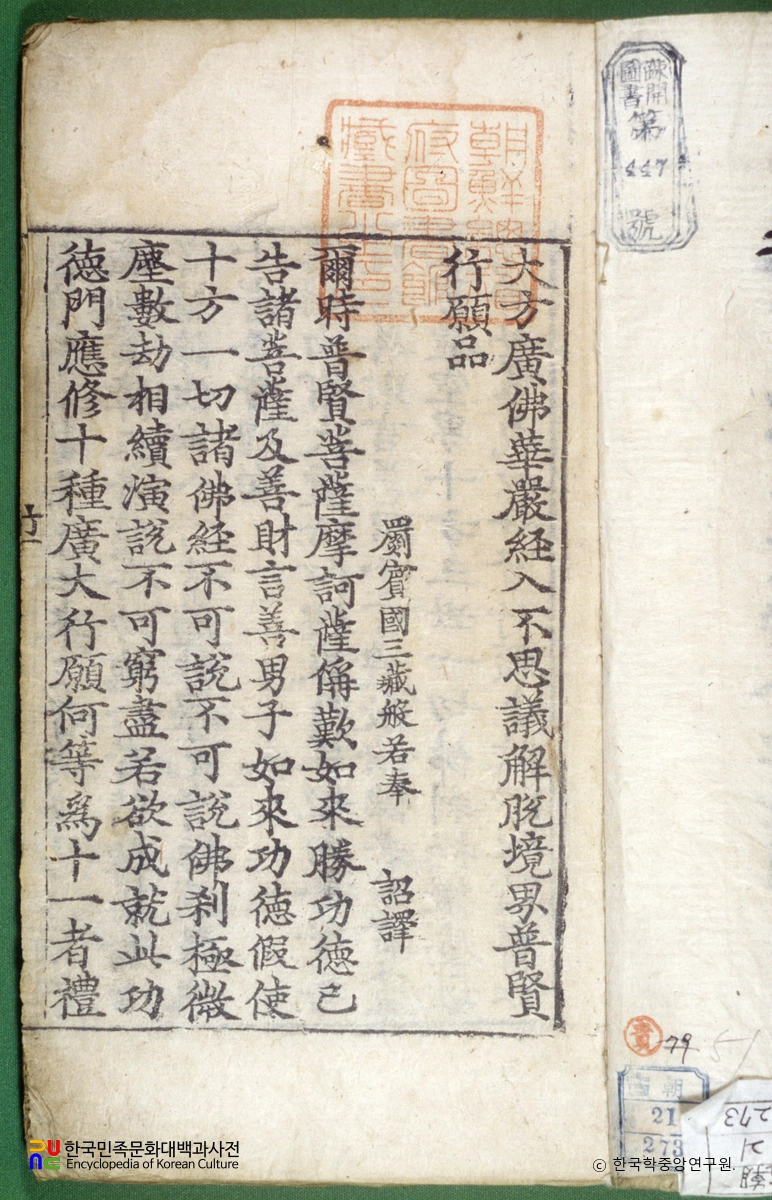 疎開
圖書
第
447
號
朝鮮總督
府圖書館
藏書之印
大方廣佛華嚴経入不思議解脫境界普賢
行願品
罽賓國三藏般若奉 詔譯
爾時普賢菩薩摩訶薩偁歎如來勝功德已
告諸菩薩及善財言善男子如來功德假使
十方一切諸佛経不可說不可說佛刹極微
塵數劫相續演說不可窮盡若欲成就此功
德門應修十種廣大行願何等爲十一者禮
貴
79
5-1
古朝
21
273
273
21
朝
한국민족문화대백과사전
Encyclopedia of Korean Culture
© 한국학중앙연구원.